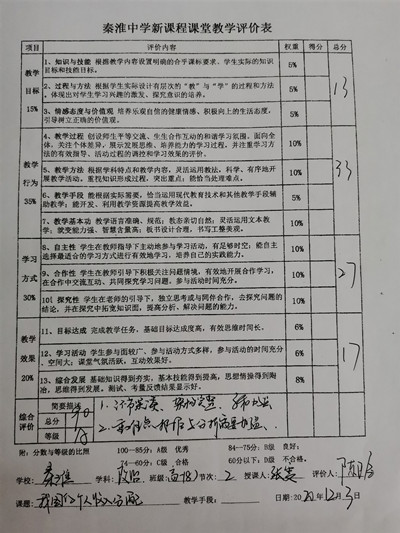 秦淮中学新课程课堂教学评价表
项目 评价内容 权重 得分 总分
教学目标 15%
1、知识与技能 根据教学内容设置明确的合乎课标要求、学生实际的知识目标和技能目标。 5%
2、过程与方法 根据学生实际设计有层次的“教”与“学”的过程和方法，体现出对学生学习兴趣的激发、探究意识的培养。 5% 13
3、情感态度与价值观 培养乐观自信的健康情感、积极向上的生活态度，引导树立正确的价值观。 5%
教学行为 35%
4、教学过程 创设师生平等交流、生生合作互动的和谐学习氛围、面向全体，关注个体差异，展示发展思维、培养能力的学习过程，并注重学习方法的有效指导、活动过程的调控和学习效果的评价。 10%
5、教学方法 根据学科特点和教学内容，灵活运用教法，科学、有序地开展教学活动。重视知识形成过程，突出重点；能恰当处理难点。 10% 33
6、教学手段 能根据实际需要，恰当运用现代教育技术和其他教学手段辅助教学；能开发、利用教学资源提高教学效益。 5%
7、教学基本功 教学语言准确、规范；教态亲切自然；灵活运用文本教学；应变能力强、智慧含量高；板书设计合理，书写工整美观。 10%
学习方式 30%
8、自主性 学生在教师指导下主动地参与学习活动，有足够时空；能自主选择最适合的学习方式进行有效地学习，培养自己的实践能力。 10%
9、合作性 学生在教师引导下积极关注问题情境，有效地开展合作学习，在合作中交流互动、共同探究学习问题。参与活动时间充分。 10% 27
10、探究性 学生在老师的引导下，独立思考或与同伴合作，去探究问题的结论，并在探究中拓宽知识面，提高分析、解决问题的能力。 10%
教学效果 20%
11、目标达成 完成教学任务、基础目标达成度高，有效思维时间长。 6%
12、学习活动 学生参与面较广、参与活动方式多样，参与活动的时间充分、空间大；课堂气氛活跃，互动效果好。 6% 17
13、综合发展 基础知识得到夯实，基本技能得到提高，思想情操得到陶冶，思维得到发展。测试、考量反馈结果显示好。 8%
综合评价 简要描述
总分 90
等级 A
附：分数与等级的比照 100—85分：A级 优秀 84—75分：B级 良好；
74—60分：C级 合格 60分以下：D级 不合格。
学校：秦淮 学科：政治 班级： 节次：2 授课人： 评价人：
课题：我国的个人收入分配 教学手段： 日期：2021年12月3日